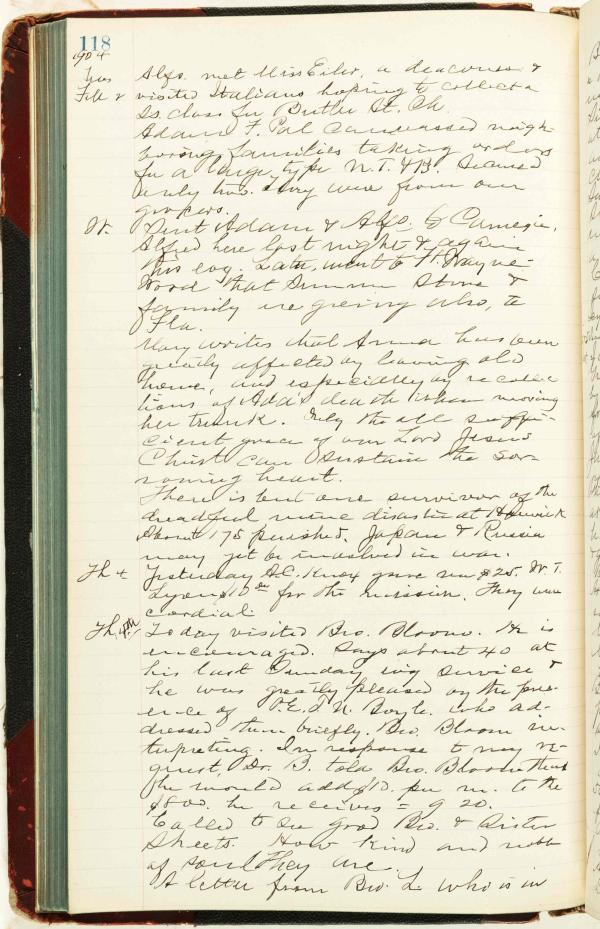 118
1904
Tues Alfo. met Miss Eiler, a deaconess &
Feb 2 visited Italians hoping to collect a
SS. class for Butler St. Ch.
Adam F. Pal canvassed neigh-
boring families taking orders
for a large type N.T. & B. Secured
only two. They were from our
grocers.
W. Sent Adam & Alfo. to Carnegie.
Alfred here last night & again
this evg. Later, went to H. Wayne-
wood that Simmon Stone &
family are going also, to
Fla.
Mary writes that Anna has been
greatly affected by leaving old
home, and especially by recollec-
tions of Ada's death when moving
her trunk. Only the all suffi-
cient grace of our Lord Jesus
Christ can sustain the sor-
rowing heart.
There is but one survivor of the
dreadful mine disaster at Harwick
About 175 perished. Japan & Russia
may yet be involved in war.
Th 4 Yesterday S.C. Knox gave me $25. W. T.
Lyon $10 for the mission. They were
cordial.
Th. 4th Today visited Bro. Bloom. He is
encouraged. Says about 40 at
his last Sunday evg service &
he was greatly pleased by the pres-
ence of P.E. T. N. Boyle who ad-
dressed them briefly. Bro. Bloom in-
terpreting. In response to my re-
quest, Dr. B. told Bro. Bloom that
he would add $12. per m. to the
$8.00. he receives = $20.
Called to see good Bro. & Sister
Sheets. How kind and noble
of soul They are.
A letter from Bro. L. who is in